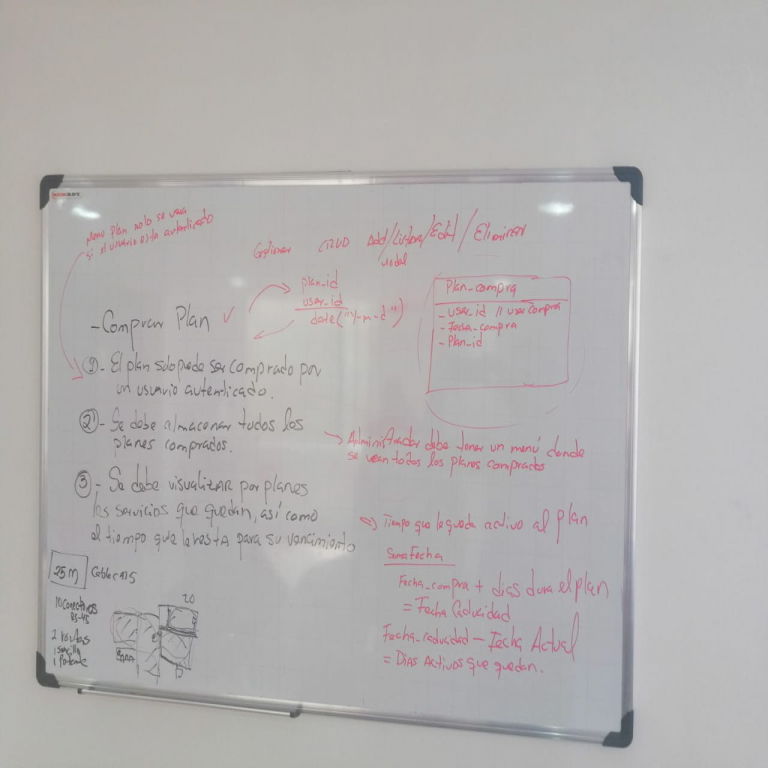 Menu Plan solo se vea
si el usuario esta autenticado
Gestionar CRUD Add/Listar/Edit/Eliminar
modal
plan_id
user_id
date("Y-m-d")
Plan_compra
- user_id // user compra
- Fecha_compra
- Plan_id
- Comprar Plan ✓
1)- El plan solo puede ser comprado por
un usuario autenticado.
2)- Se debe almacenar todos los
planes comprados.
→ Administrador debe tener un menú donde
se vean todos los planes comprados
3- Se debe visualizar por planes
los servicios que quedan, así como
el tiempo que le resta para su vencimiento
Tiempo que le queda activo al plan
Suma Fecha
Fecha_compra + dias dura el plan
= Fecha Caducidad
Fecha_caducidad - Fecha Actual
= Dias Activos que quedan.
25 m
10 conectores
RJ-45
20